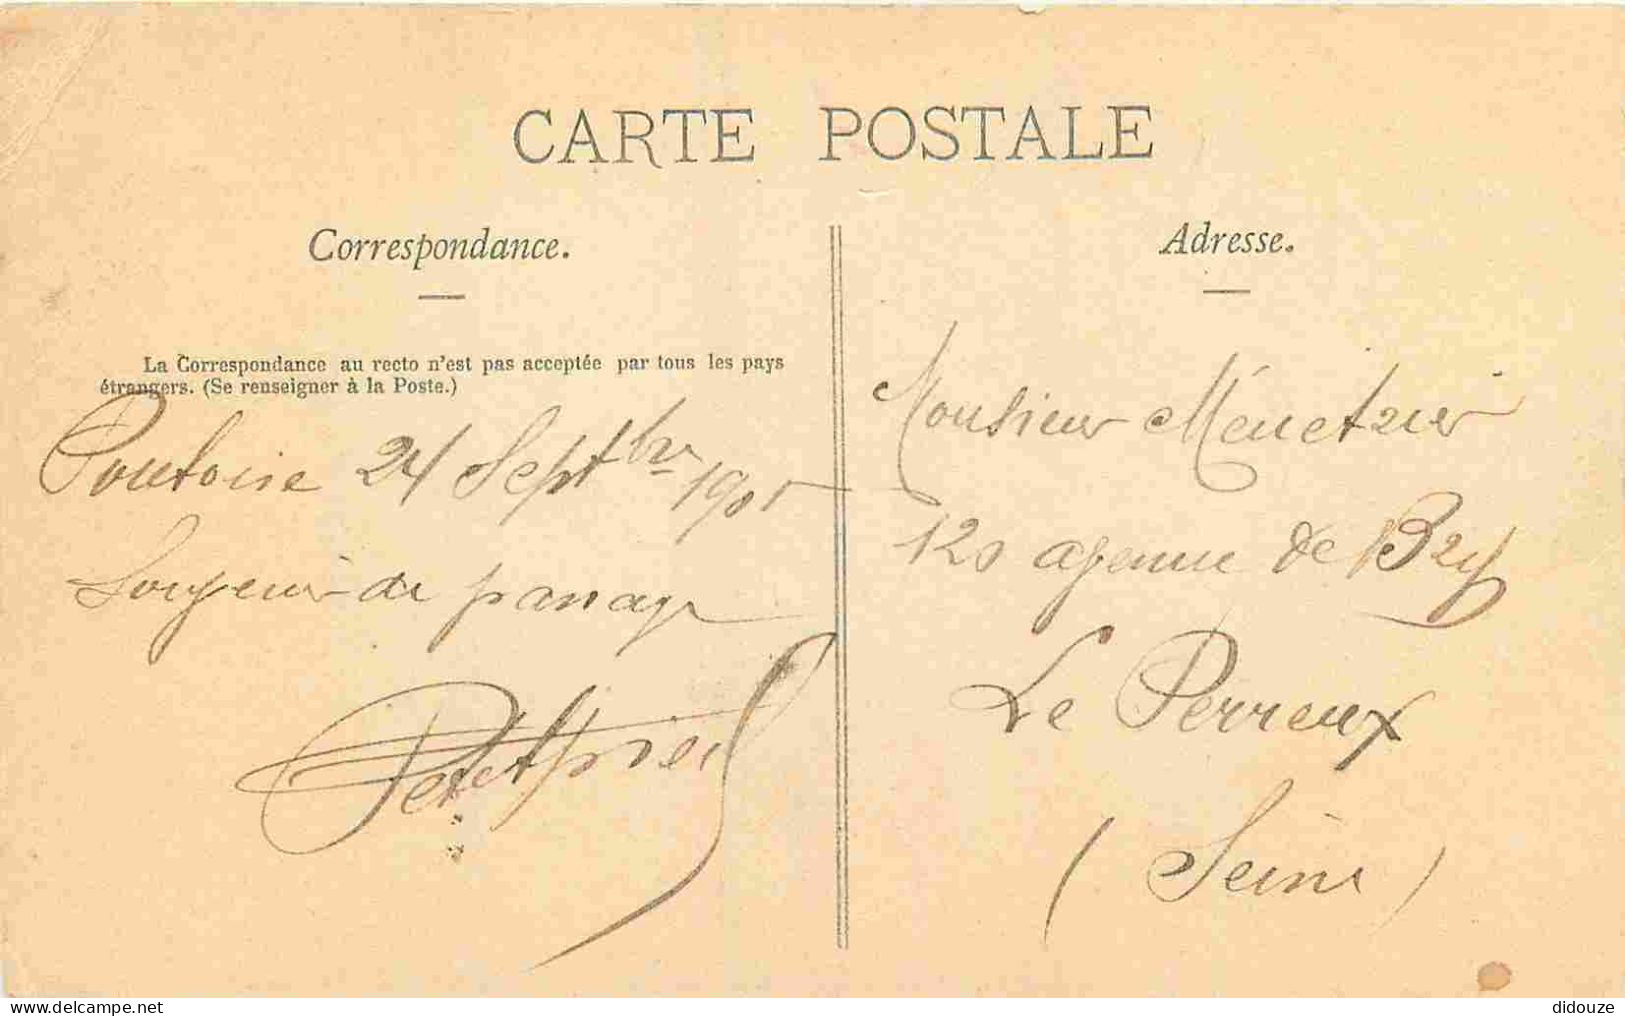 CARTE POSTALE
Correspondance.
La Correspondance au recto n'est pas acceptée par tous les pays
étrangers. (Se renseigner à la Poste.)
Pontoise 24 Septbre 1905
de passage
Adresse.
Monsieur Ménetrier
120 avenue de Bry
Le Perreux
(Seine)
www.delcampe.net
didouze